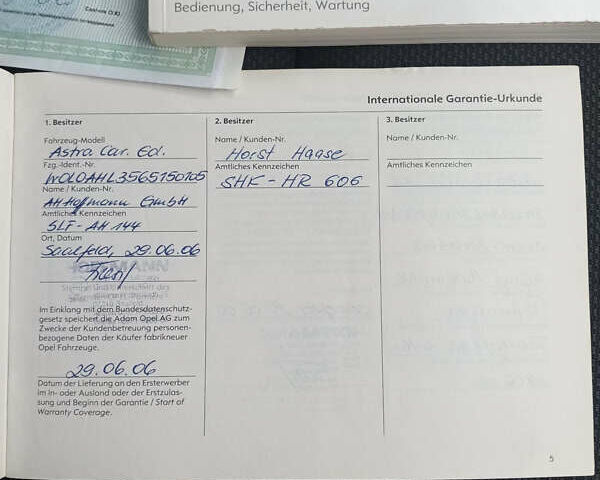 Bedienung, Sicherheit, Wartung
Internationale Garantie-Urkunde
1. Besitzer
Fahrzeug-Modell
Astra Car. Ed.
Fzg.-Ident.-Nr.
W0L0AHL3565150105
Name / Kunden-Nr.
AH Hofmann GmbH
Amtliches Kennzeichen
SLF-AH 144
Ort, Datum
Saalfeld, 29.06.06
Stempel und Unterschrift des
Im Einklang mit dem Bundesdatenschutz-
gesetz speichert die Adam Opel AG zum
Zwecke der Kundenbetreuung personen-
bezogene Daten der Käufer fabrikneuer
Opel Fahrzeuge.
29.06.06
Datum der Lieferung an den Ersterwerber
im In- oder Ausland oder der Erstzulas-
sung und Beginn der Garantie / Start of
Warranty Coverage.
2. Besitzer
Name / Kunden-Nr.
Horst Haase
Amtliches Kennzeichen
SHK-HR 606
3. Besitzer
Name / Kunden-Nr.
Amtliches Kennzeichen
5